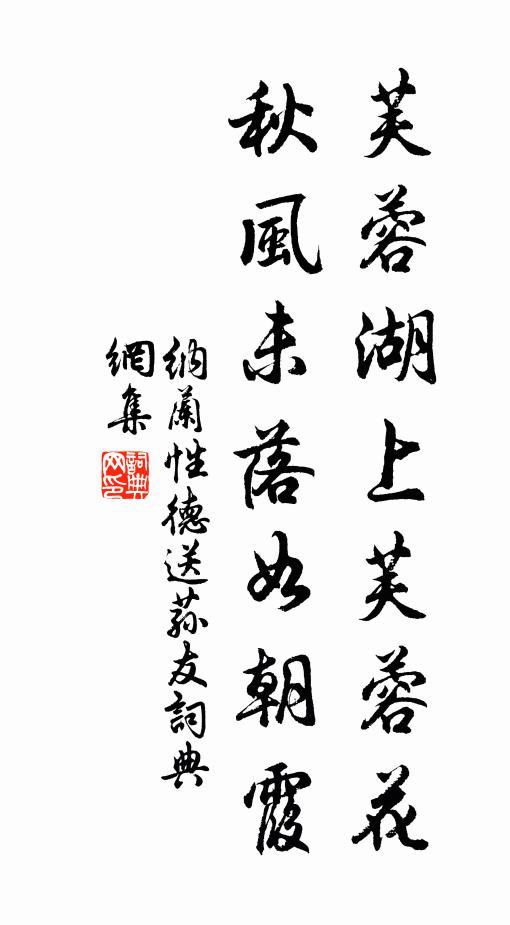 芙蓉湖上芙蓉花
秋風未落如朝霞
納蘭性德送蓀友詞典
網集
詞典網印